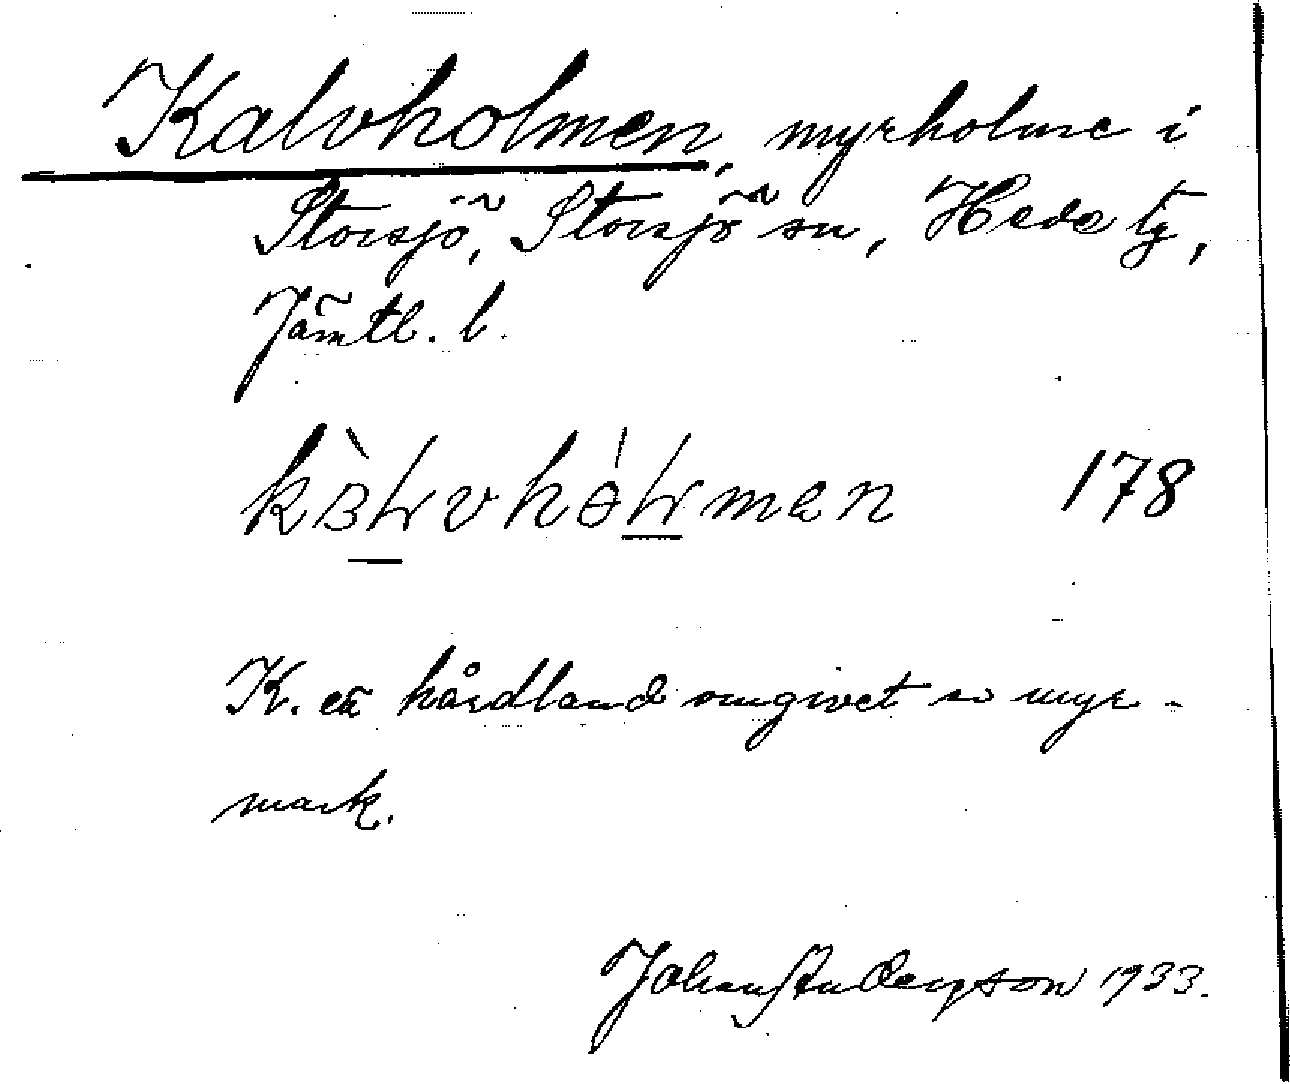 Kalvholmen, myrholme i
Storsjö, Storsjö sn, Hede tg,
Jämtl. l.
178
K. är hårdland omgivet av myr-
mark.
Johan Anderson 1933.